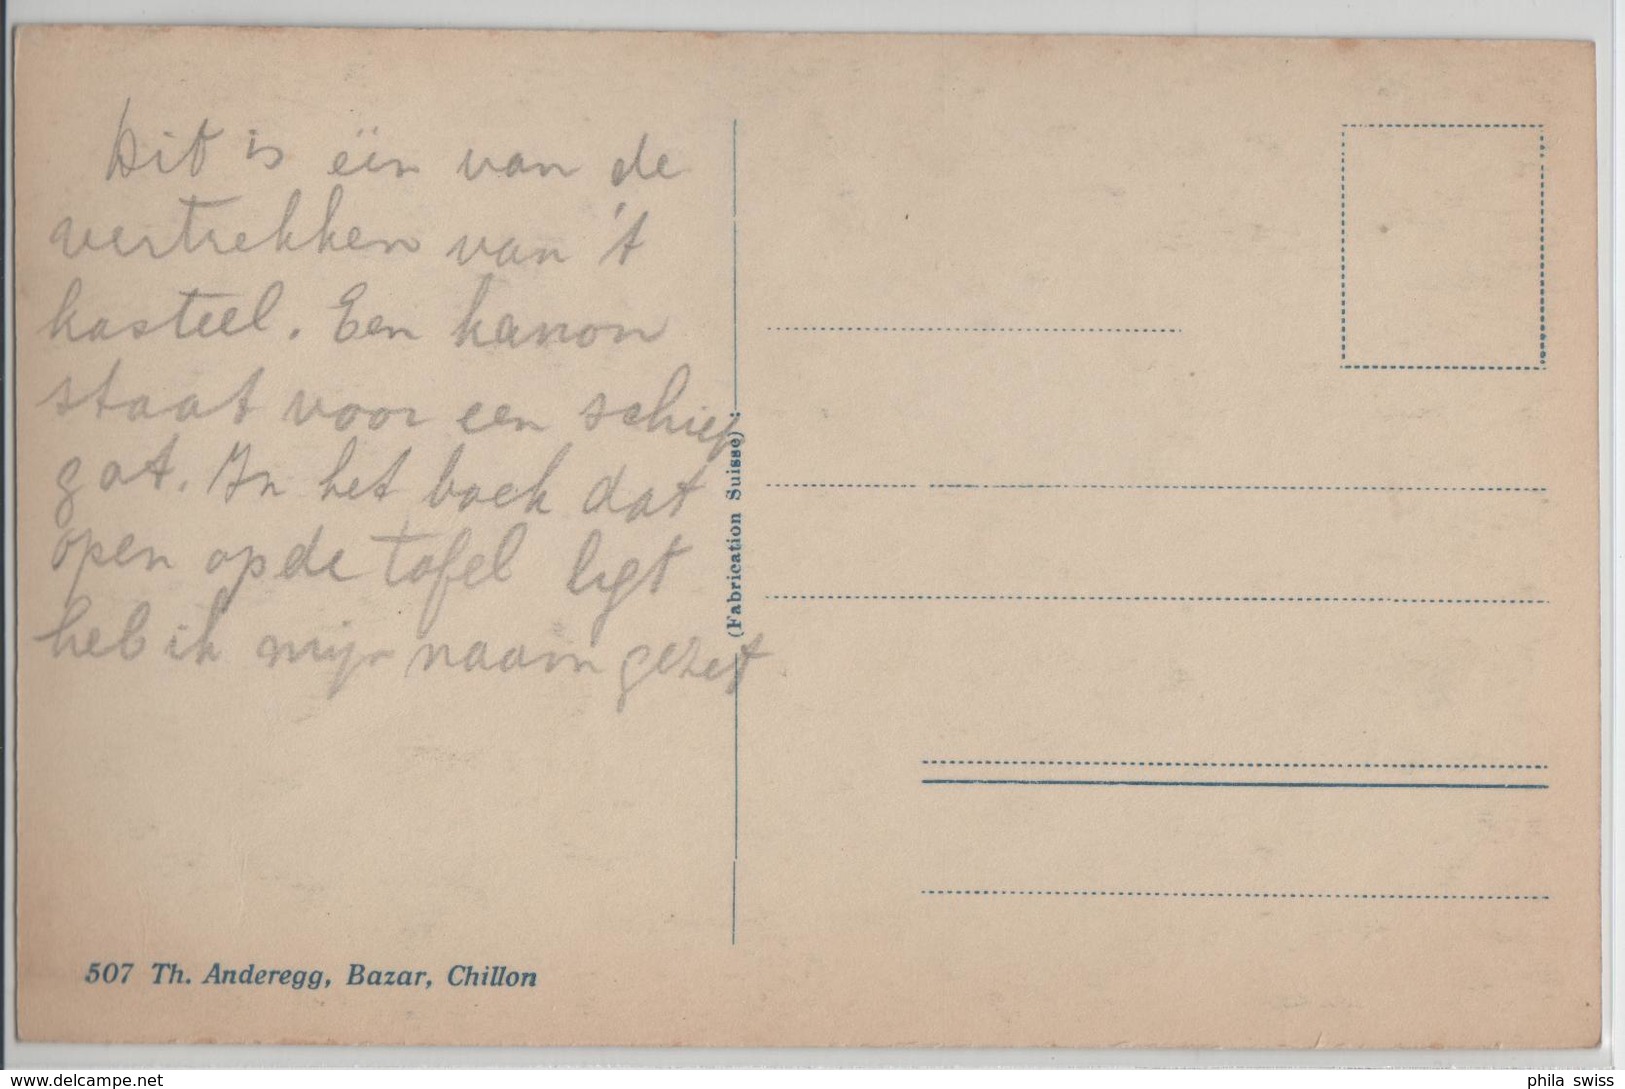 Dit is één van de
vertrekken van 't
kasteel. Een kanon
staat voor een schiet
gat. In het boek dat
open op de tafel ligt
heb ik mijn naam gezet
(Fabrication Suisse)
507 Th. Anderegg, Bazar, Chillon
www.delcampe.net
phila_swiss